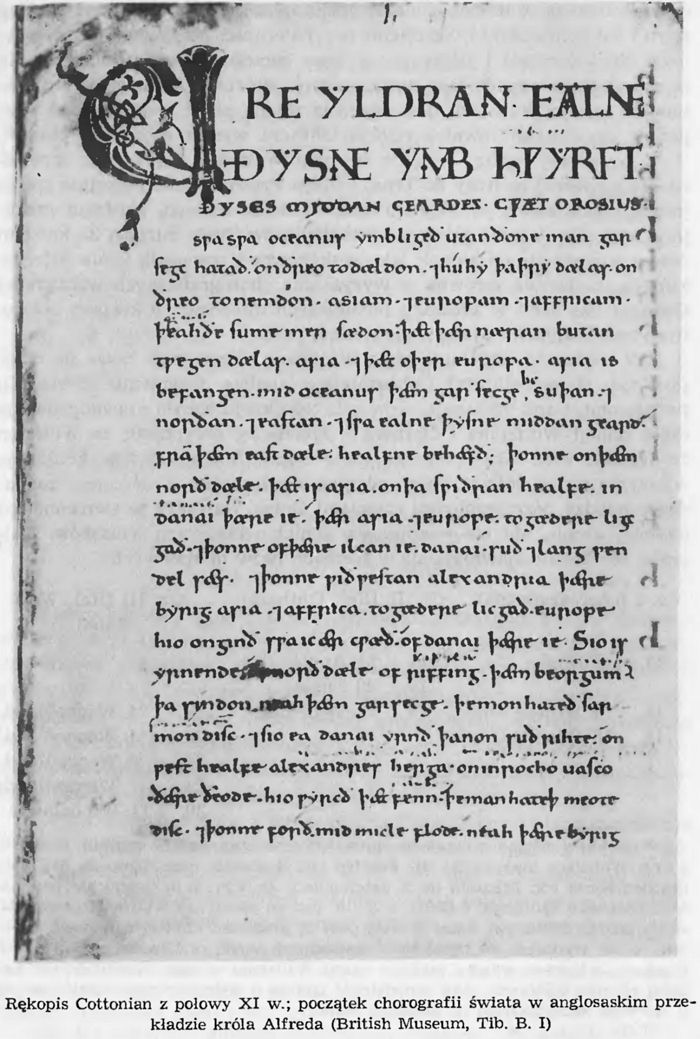 1.
URE YLDRAN. EALNE
ÐYSNE YMB HǷYRFT
ÐYSES MIDDAN GEARDES. CǷÆT OROSIUS.
sƿa sƿa oceanus ymbligeð utan ðone man gar
segc hatað. on ðreo todældon. ⁊hu hy þa þry dælas. on
ðreo tonemdon. asiam. ⁊europam. ⁊affricam.
þeahðe sume men sædon. þæt þær næran butan
tƿegen dælas. asia. ⁊þæt oþer europa. asia is
befangen. mid oceanus þæm garsecge be suþan. ⁊
norðan. ⁊eastan. ⁊sƿa ealne þysne middan geard.
frā þæm east dæle. healfne behæfð; þonne on þæm
norð dæle. þæt is asia. on þa sƿiðran healfe. in
danai þære ie. þær asia. ⁊europe. togædere lig
gað. ⁊þonne of þære ilcan ie. danai. suð ⁊lang ƿen
del sæs. ⁊þonne ƿið ƿestan alexandria þære
byrig asia. ⁊affrica. togædere licgað. europe
hio onginð sƿa ic ær cƿæð. of danai þære ie. Sio is
yrnende norð dæle of riffing. þæm beorgum
þa syndon. neah þæm garsecge. þe mon hateð sar
mon disc. ⁊sio ea danai yrnð þanon suð rihte. on
ƿest healfe alexandres herga. on in rocho uasco
ðære ðeode. hio ƿyrcð þæt fenn. þe man hateþ meote
disc. ⁊þonne forð. mid micle flode. neah þære byrig
Rękopis Cottonian z połowy XI w.; początek chorografii świata w anglosaskim prze-
kładzie króla Alfreda (British Museum, Tib. B. I)